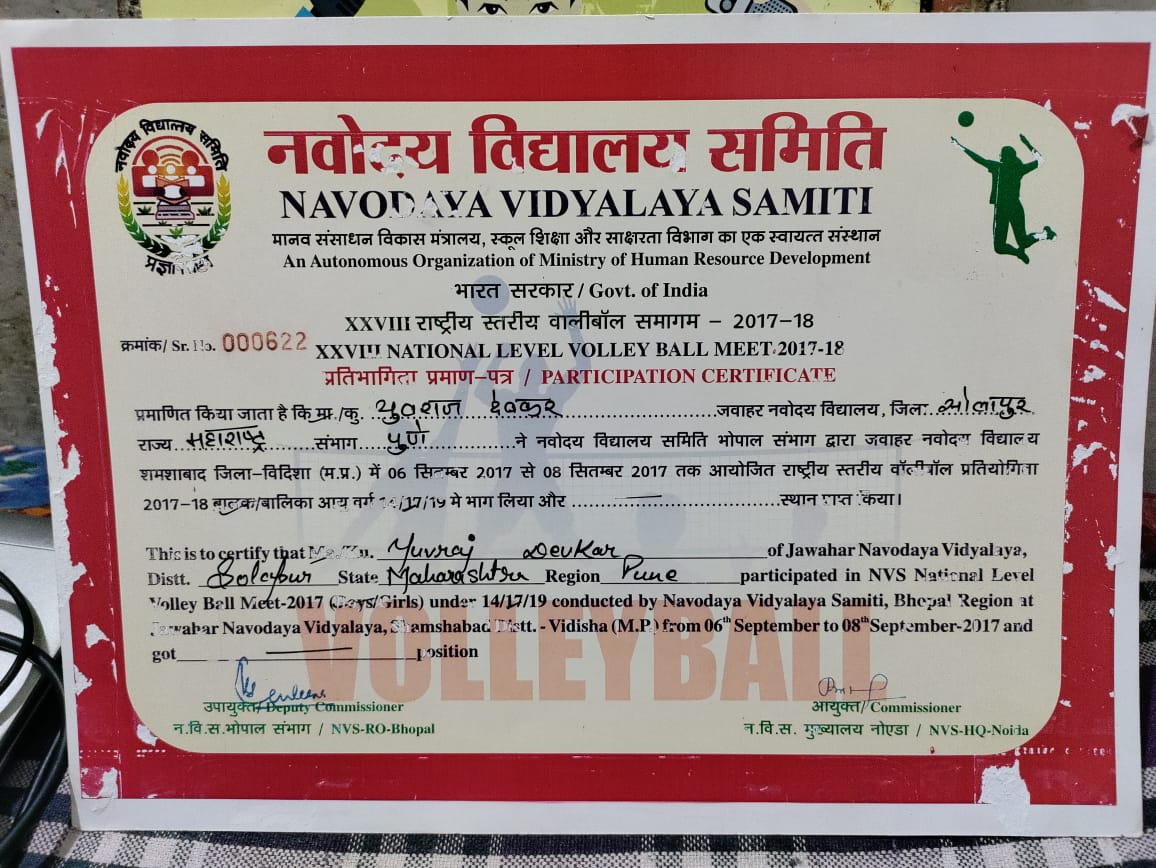 नवोदय विद्यालय समिति
नवोदय विद्यालय समिति
NAVODAYA VIDYALAYA SAMITI
मानव संसाधन विकास मंत्रालय, स्कूल शिक्षा और साक्षरता विभाग का एक स्वायत्त संस्थान
An Autonomous Organization of Ministry of Human Resource Development
भारत सरकार / Govt. of India
XXVIII राष्ट्रीय स्तरीय वालीबॉल समागम – 2017-18
क्रमांक/ Sr. No. 000622
XXVIII NATIONAL LEVEL VOLLEY BALL MEET-2017-18
प्रतिभागिता प्रमाण-पत्र / PARTICIPATION CERTIFICATE
प्रमाणित किया जाता है कि मा./कु. युवराज देवकर जवाहर नवोदय विद्यालय, जिला सोलापुर
राज्य महाराष्ट्र संभाग पुणे ने नवोदय विद्यालय समिति भोपाल संभाग द्वारा जवाहर नवोदय विद्यालय
शमशाबाद जिला-विदिशा (म.प्र.) में 06 सितम्बर 2017 से 08 सितम्बर 2017 तक आयोजित राष्ट्रीय स्तरीय वॉलीबॉल प्रतियोगिता
2017-18 बालक/बालिका आयु वर्ग 14/17/19 मे भाग लिया और स्थान प्राप्त किया।
This is to certify that Ms./Ku. Yuvraj Devkar of Jawahar Navodaya Vidyalaya,
Distt. Solapur State Maharashtra Region Pune participated in NVS National Level
Volley Ball Meet-2017 (Boys/Girls) under 14/17/19 conducted by Navodaya Vidyalaya Samiti, Bhopal Region at
Jawahar Navodaya Vidyalaya, Shamshabad Distt. - Vidisha (M.P.) from 06th September to 08th September-2017 and
got position
VOLLEYBALL
उपायुक्त/ Deputy Commissioner
न.वि.स.भोपाल संभाग / NVS-RO-Bhopal
आयुक्त/ Commissioner
न.वि.स. मुख्यालय नोएडा / NVS-HQ-Noida